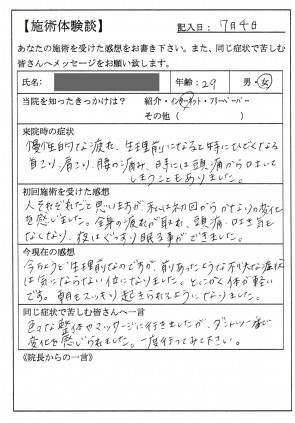 【施術体験談】 記入日：7月4日
あなたの施術を受けた感想をお書き下さい。また、同じ症状で苦しむ
皆さんへメッセージをお願い致します。
氏名: 年齢：29 男・女
当院を知ったきっかけは？ 紹介・インターネット・フリーペーパー
その他（ ）
来院時の症状
慢性的な疲れ、生理前になると特にひどくなる
首こり、肩こり、腰の痛み、時には頭痛から吐いて
しまうこともありました。
初回施術を受けた感想
人それぞれだと思いますが、私は初回からかなりの変化
を感じました。全身の疲れが取れ、頭痛・吐き気も
なくなり、夜はぐっすり眠る事ができました。
今現在の感想
今ちょうど生理前なのですが、前あったような不快な症状
は気にならない位になりました。とにかく体が軽い
です。朝もスッキリ起きられるようになりました。
同じ症状で苦しむ皆さんへ一言
色々な整体やマッサージに行きましたが、ダントツ一番で
変化を感じられました。一度行ってみて下さい。
《院長からの一言》